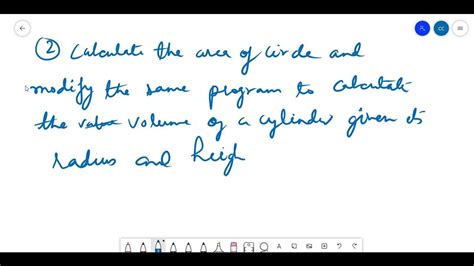 ② Calculate the area of circle and
modify the same program to calculate
the volume of a cylinder given its
radius and heigh